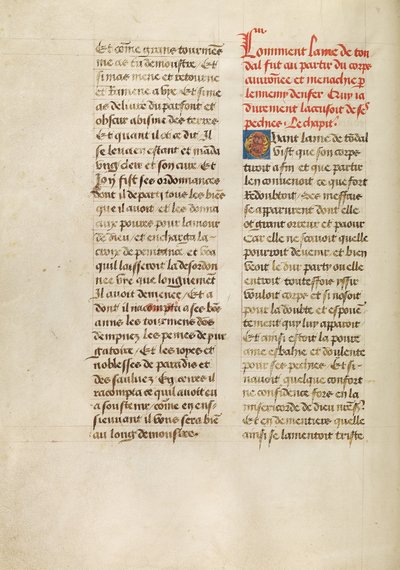 Et co͞me grans tourmens
me as tu demonstre / Et
si mas mene et retourne
et Ramene a vye Et si me
as deliure du parfont et
obscur abisme des terres
Et quant il ot ce dit Il
se leua en estant et ma͞da
vng clerc et son cure Et
Ioy͞ fist ses ordonnances
dont il departy tous les bie͞s
que il auoit et les donna
aux poures pour lamour
de dieu / et encharga la
croix de penitance et voa
quil laisseroit la desordon
nee vye que longuement
Il auoit demenee / Et a
dont il racompta a ses bo͞s
amis les tourmens des
dempnez les peines de pur
gatoire / Et les ioyes et
noblesses de paradis et
des sauluez Et genres il
racompta ce quil auoit eu
a soustenir / co͞me en ens
sieuuant il vous sera bie͞
au long demonstre .
iiii
Comment lame de ton
dal fut au partir du corps
auironnee et menachee p͞
lennemy denfer Et quy la
durement laccusoit de ses
pechies . Le chapit͞ .
Quant lame de to͞dal
vist que son corps
tiroit a fin et que partir
len conuenoit ce que fort
Redoubtoit / Ses meffais
se apparurent dont elle
ot grant orreur et paour
Car elle ne scauoit quelle
pourroit deuenir et bien
veoit le dur party ou elle
entroit touteffois yssir
vouloit corps et si nosoit
pour la doubte et espoue͞
tement quy luy apparoit
Et ainsi estoit la poure
ame esbahie et doulente
pour ses pechies . Et si
nauoit quelque confort
ne confidence fors en la
misericorde de dieu n͞re s͞r
Et en dementiers quelle
ainsi se lamentoit triste